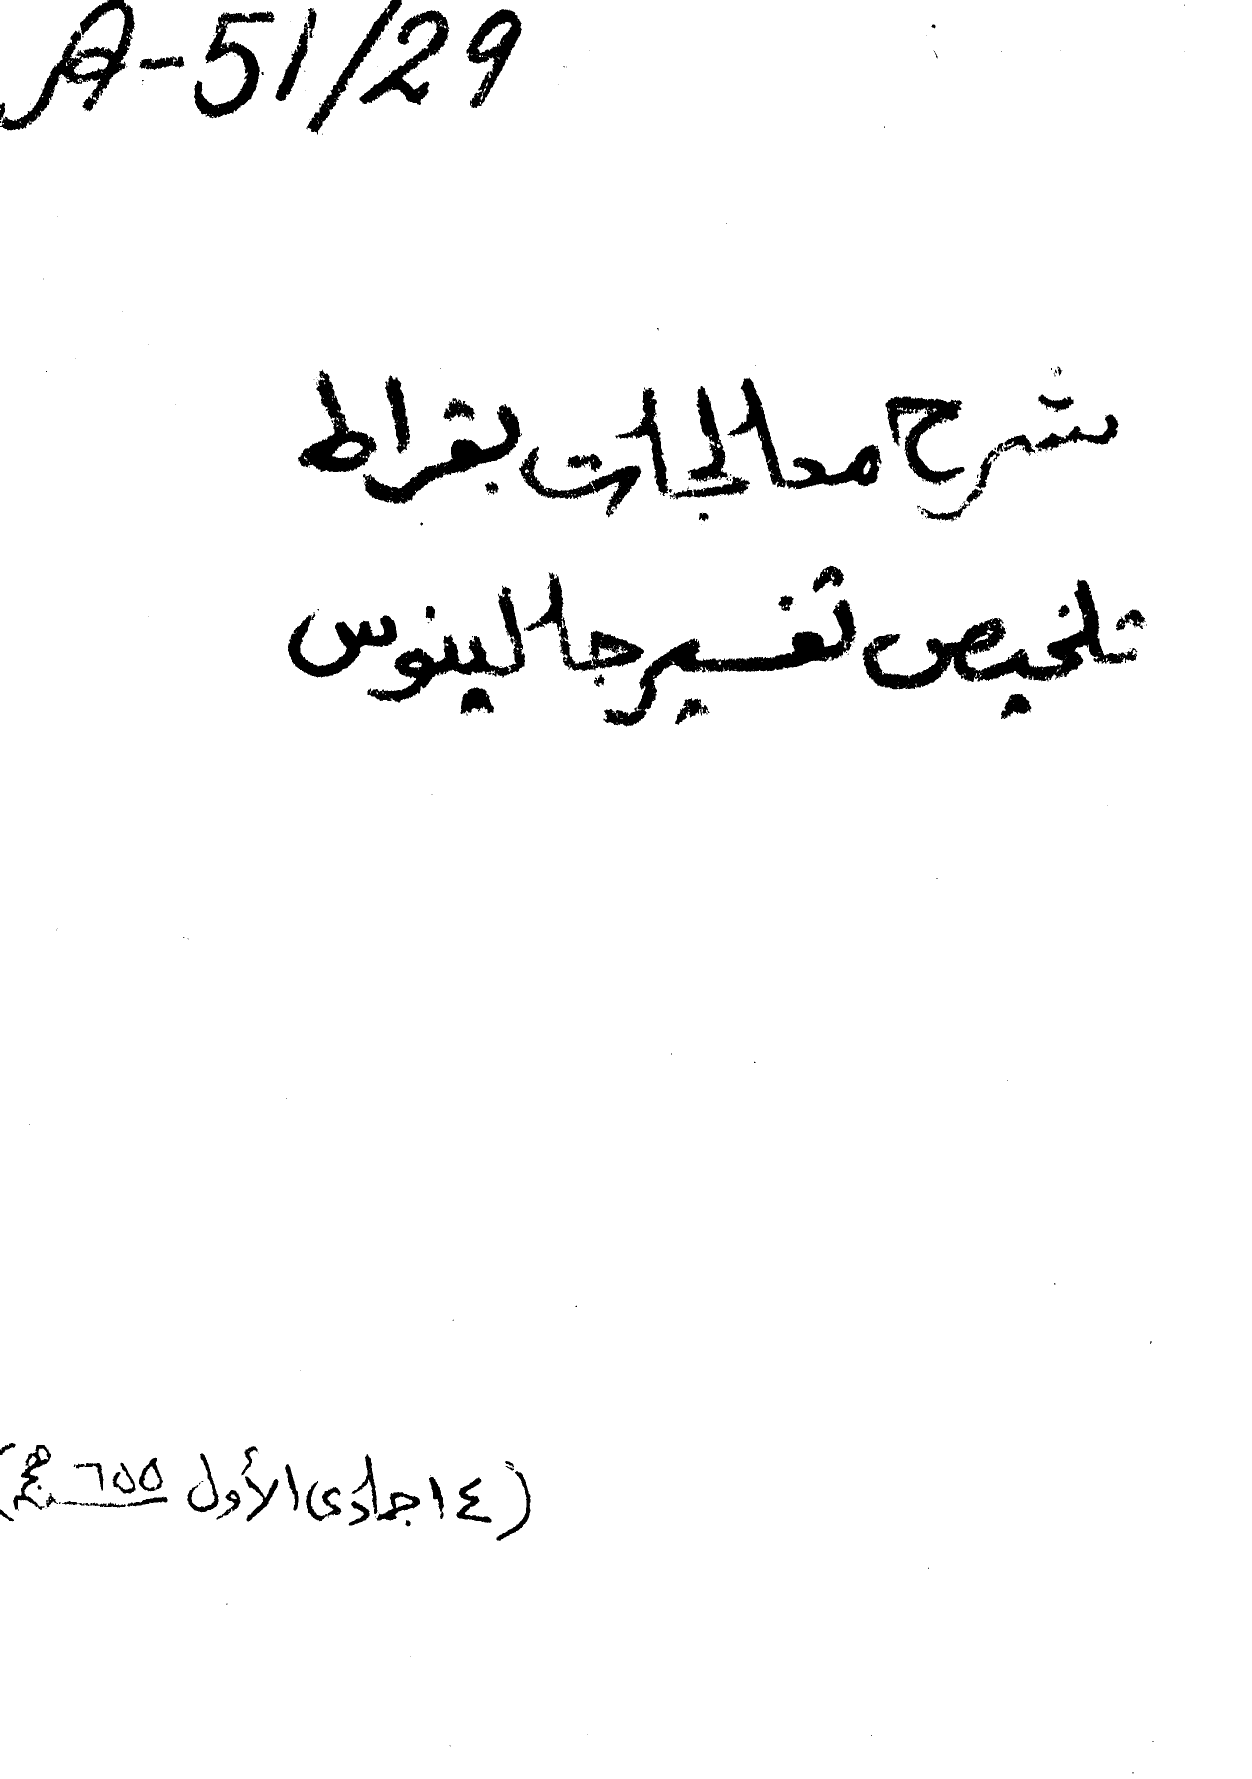 A-51/29
شرح معالجات بقراط
تلخيص تفسير جالينوس
(١٤ جمادى الأول ٦٥٥ هـ)